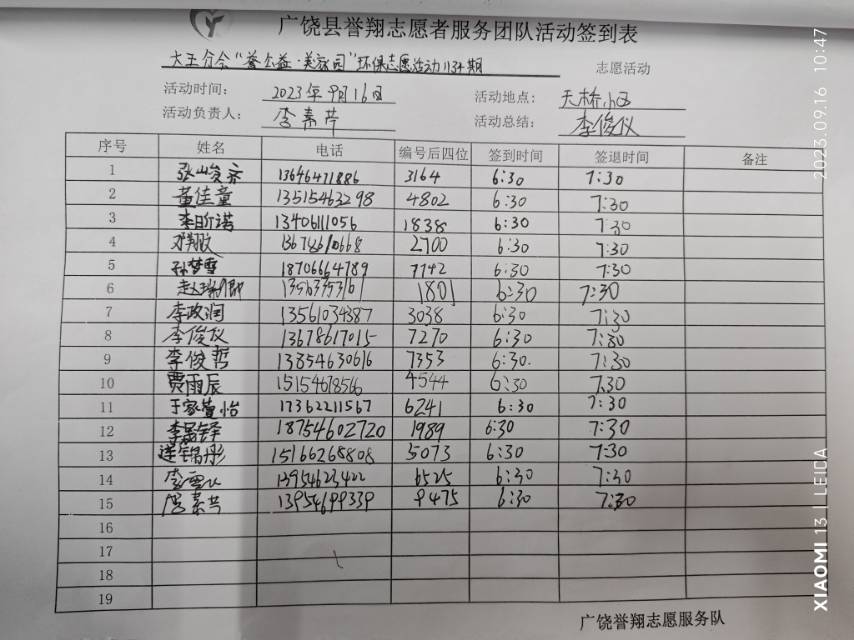 广饶县誉翔志愿者服务团队活动签到表
大王分会“益公益·美家园”环保志愿活动1134期 志愿活动
活动时间： 2023年9月16日 活动地点： 天桥小区
活动负责人： 李素芹 活动总结： 李俊仪
序号 姓名 电话 编号后四位 签到时间 签退时间 备注
1 13646471886 3164 6:30 7:30
2 董佳童 13515463298 4802 6:30 7:30
3 李昕诺 13406111056 1838 6:30 7:30
4 邓翔文 13678610668 2700 6:30 7:30
5 孙梦雪 18706664789 7742 6:30 7:30
6 1801 6:30 7:30
7 李政润 13561034387 3038 6:30 7:30
8 李俊仪 13678617015 7270 6:30 7:30
9 李俊哲 13854630616 7353 6:30. 7:30
10 贾雨辰 15154678566 4544 6:30 7:30
11 17362211567 6241 6:30 7:30
12 18754602720 1989 6:30 7:30
13 15166268808 5073 6:30 7:30
14 13954623422 6525 6:30 7:30
15 13954699339 9475 6:30 7:30
16
17
18
19
广饶誉翔志愿服务队
XIAOMI 13 | LEICA
2023.09.16 10:47